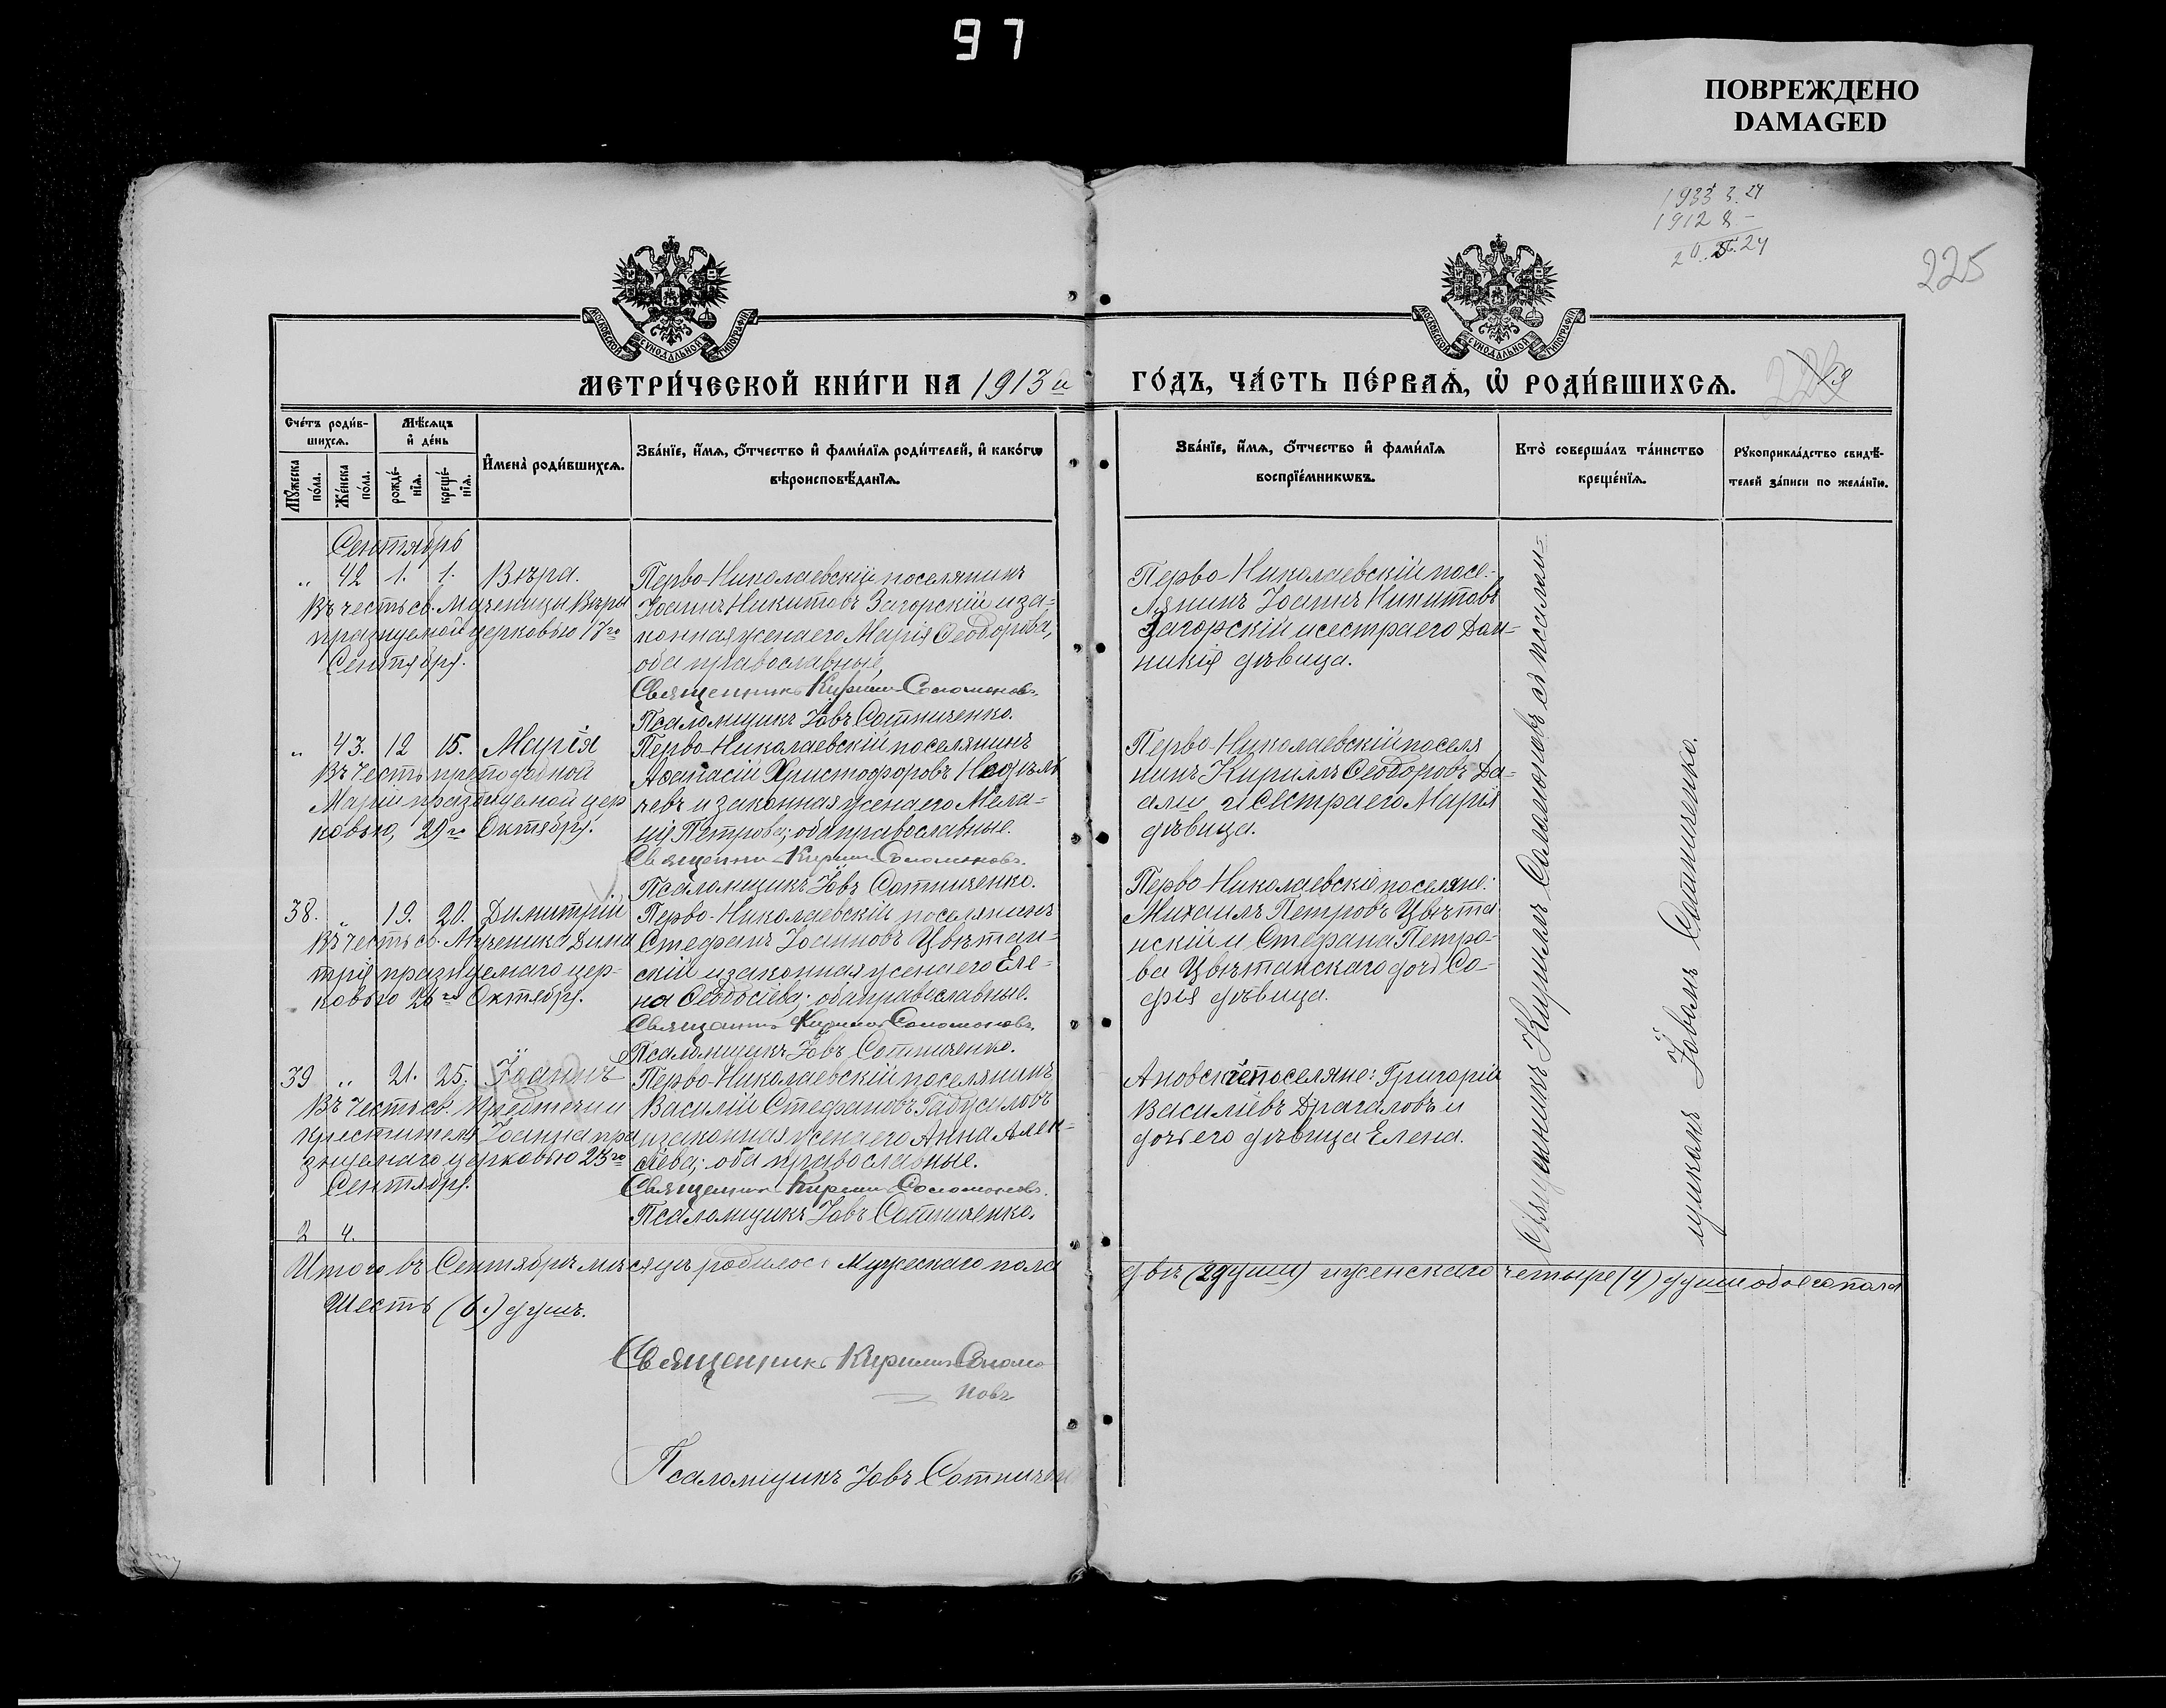 97
ПОВРЕЖДЕНО
DAMAGED
1912 8 –
225
МОСКОВСКОЙ СѴНОДАЛЬНОЙ ТИПОГРАФІИ
МОСКОВСКОЙ СѴНОДАЛЬНОЙ ТИПОГРАФІИ
МЕТРИ́ЧЕСКОЙ КНИ́ГИ НА 1913й ГО́ДЪ, ЧА́СТЬ ПЕ́РВАѦ, Ѡ҆ РОДИ́ВШИХСѦ.
Сче́тъ роди́в-
шихсѧ.
Мѣ́сѧцъ
и҆ де́нь
Мꙋ́жеска
по́ла.
Же́нска
по́ла.
рожде́-
нїѧ.
креще́-
нїѧ.
И҆мена̀ роди́вшихсѧ.
Зва́нїе, и҆́мѧ, ѻ҆́тчество и҆ фами́лїѧ роди́телей, и҆ како́гѡ
вѣроисповѣ́данїѧ.
Зва́нїе, и҆́мѧ, ѻ҆́тчество и҆ фами́лїѧ
воспрїе́мникѡвъ.
Кто̀ соверша́лъ та́инство
креще́нїѧ.
Рꙋкоприкла́дство свидѣ́-
телей за́писи по жела́нїю.
Сентябрь
„ 42 1. 1. Вѣра.
Въ честь св. Мученицы Вѣры
празнуемой церковью 17го
Сентября.
Перво-Николаевскій поселянинъ
Іоаннъ Никитовъ Загорскій и за-
конная жена его Марія Ѳеодорова,
оба православные.
Священникъ Кириллъ Соломоновъ.
Псаломщикъ Іовъ Сотниченко.
Перво-Николаевскій посе-
лянинъ Іоаннъ Никитовъ
Загорскій и сестра его Дом-
никія дѣвица.
„ 43. 12 15. Марія
Въ честь преподобной
Маріи празднуемой цер
ковью, 29го Октября.
Перво-Николаевскій поселянинъ
Аѳанасій Христофоровъ Недѣль
чевъ и законная жена его Мела-
нія Петрова; оба православные.
Священникъ Кириллъ Соломоновъ.
Псаломщикъ Іовъ Сотниченко.
Перво-Николаевскій поселя
нинъ Кириллъ Ѳеодоровъ Да-
али и сестра его Марія
дѣвица.
38. „ 19. 20. Димитрій
Въ честь св. Мученика Дими
трія празнуемаго цер-
ковью 26го Октября.
Перво-Николаевскій поселянинъ
Стефанъ Іоанновъ Цвѣтан-
скій и законная жена его Еле-
на Ѳеодосіева; оба православные.
Священникъ Кириллъ Соломоновъ.
Псаломщикъ Іовъ Сотниченко.
Перво-Николаевскіе поселяне:
Михаилъ Петровъ Цвѣта
нскій и Стефана Петро-
ва Цвѣтанскаго дочь Со-
фія дѣвица.
39 „ 21. 25. Іоаннъ
Въ честь св. Предтечи и
Крестителя Іоанна пра
знуемаго церковью 23го
Сентября.
Перво-Николаевскій поселянинъ
Василій Стефановъ Гайдусиловъ
и законная жена его Анна Алек-
сѣева; оба православные.
Священникъ Кириллъ Соломоновъ.
Псаломщикъ Іовъ Сотниченко.
поселяне: Григорій
Василіевъ Драгаловъ и
дочь его дѣвица Елена.
Священникъ Кириллъ Соломоновъ съ псалом-
щикомъ Іовомъ Сотниченко.
2 4.
Итого въ Сентябрѣ мѣсяцѣ родилось Мужескаго пола двѣ (2 души) и женскаго четыре (4) души обоего пола
Шесть (6.) душъ.
Священникъ Кириллъ Соломо
новъ
Псаломщикъ Іовъ Сотниченко